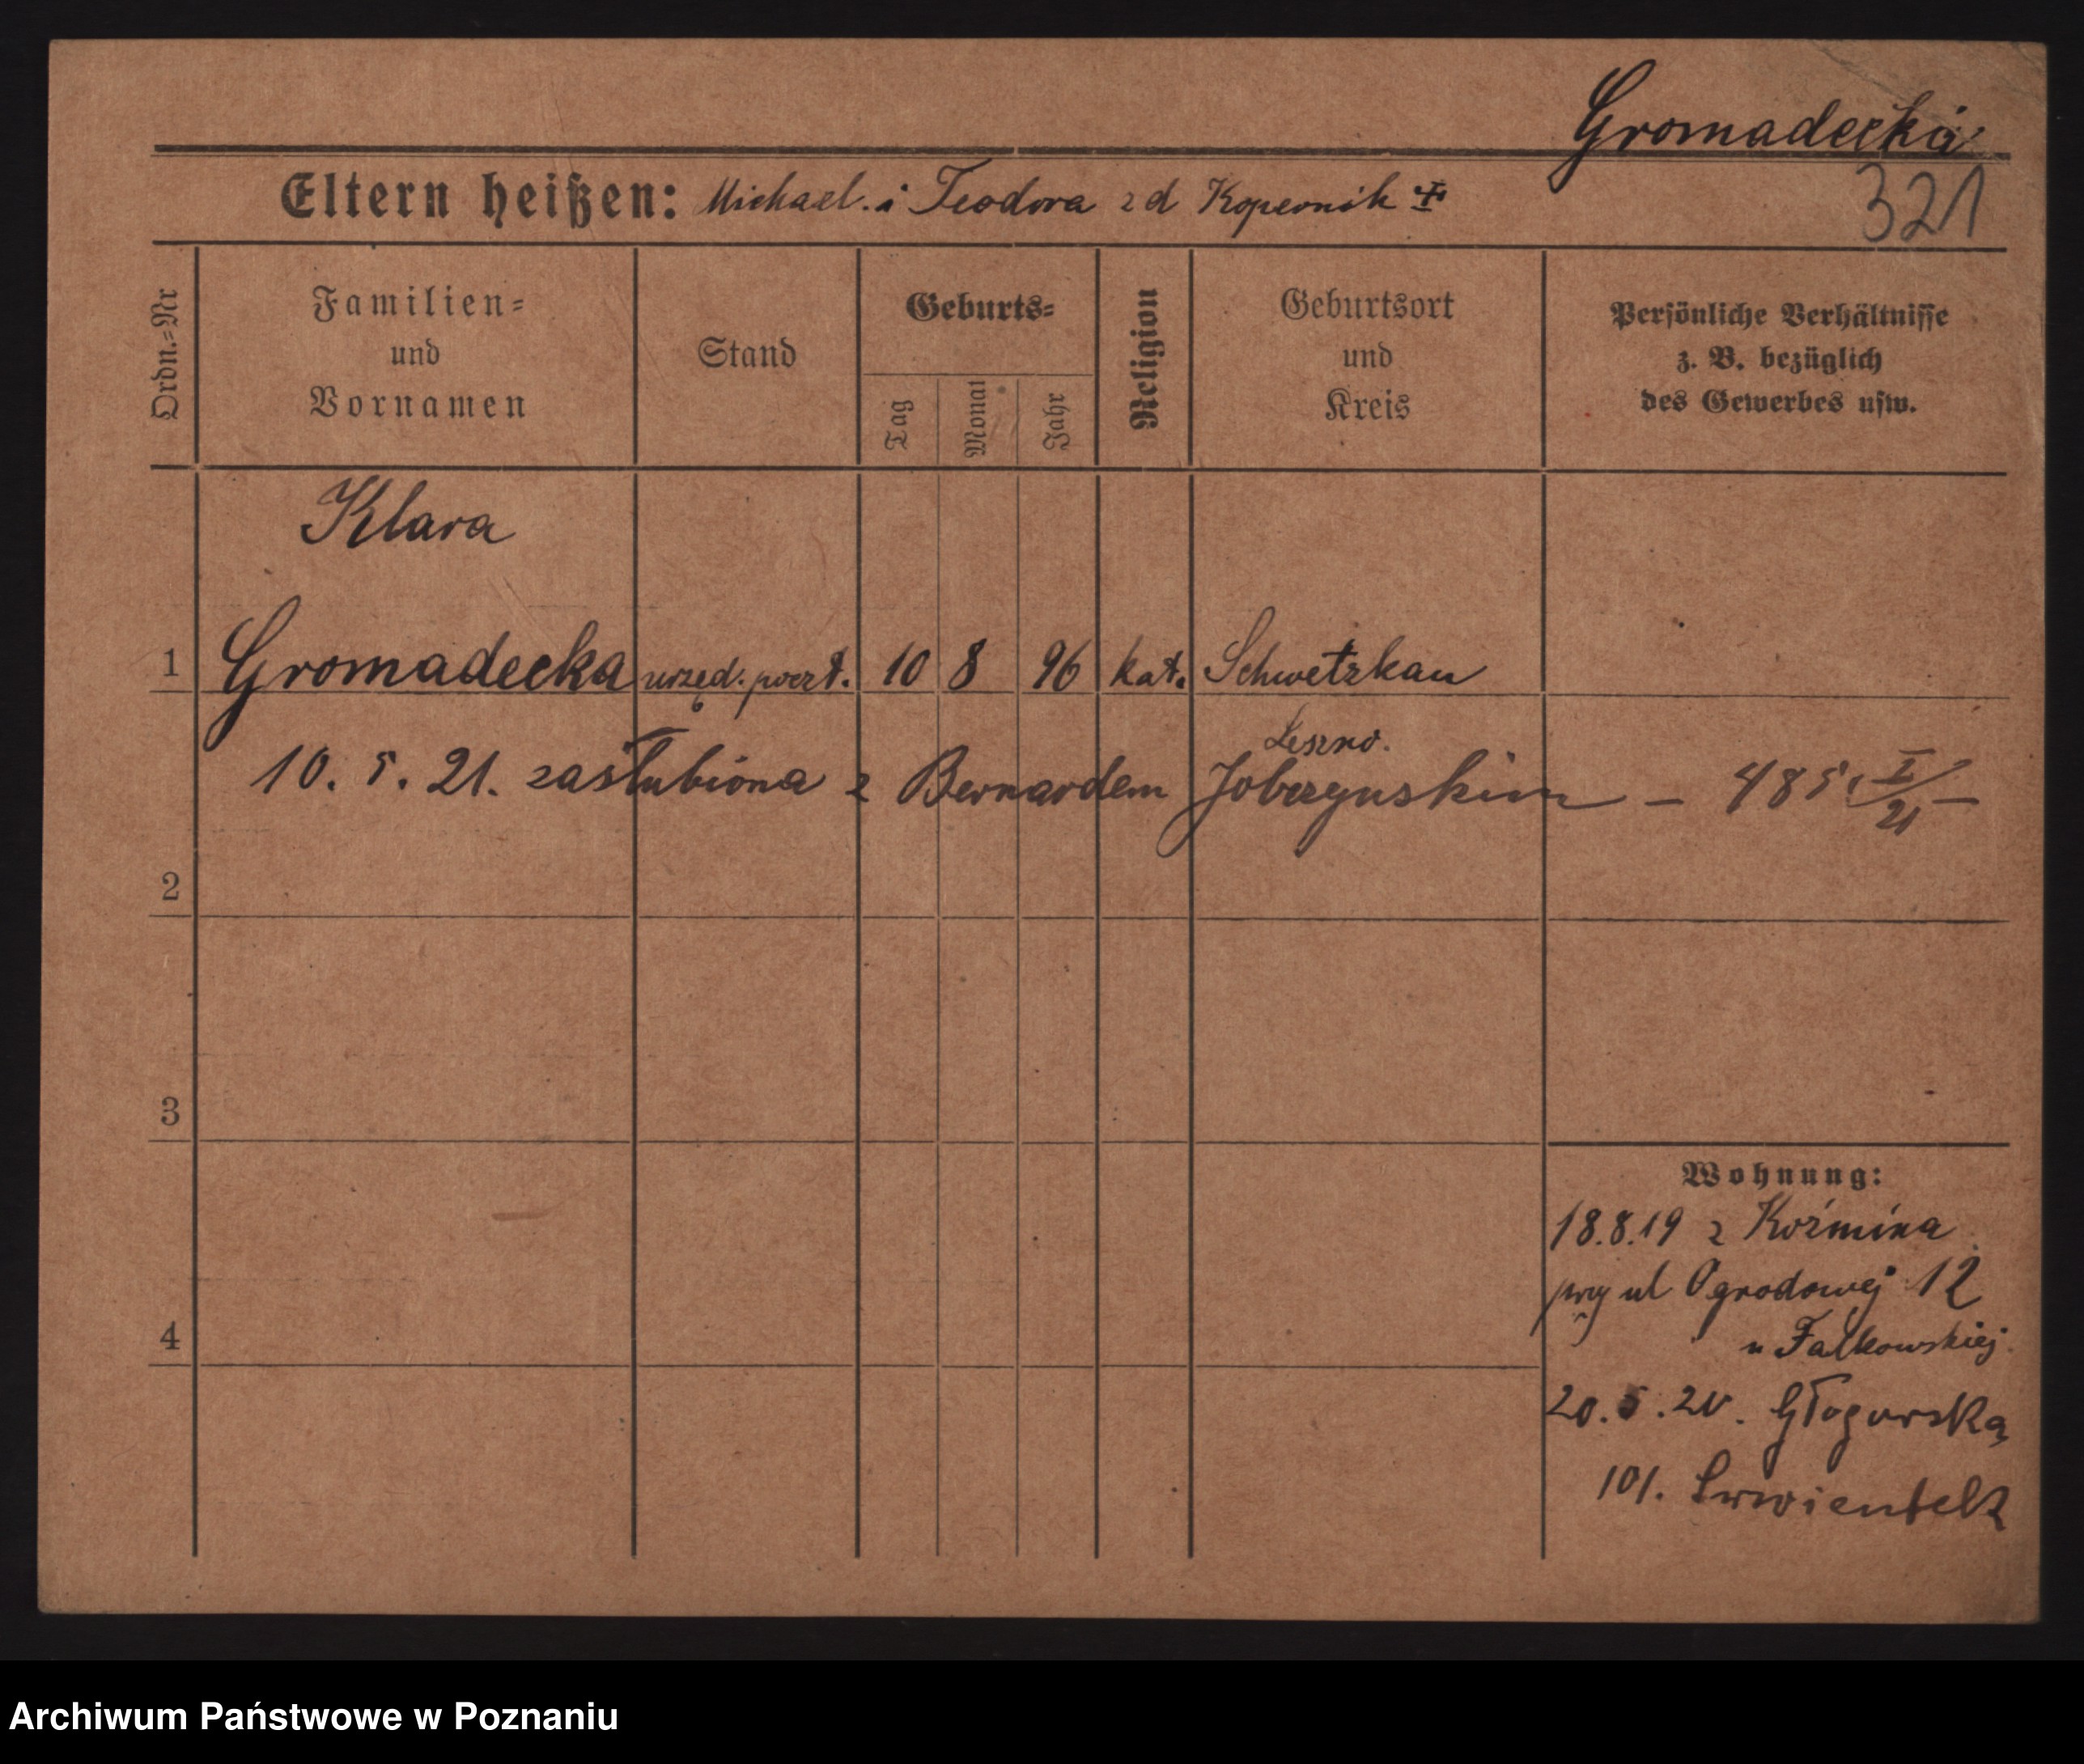 Gromadecka
321
Eltern heißen: Michael. i Teodora z d Kopernik
Ordn.=Nr
Familien=
und
Vornamen
Stand
Geburts=
Tag
Monat
Jahr
Religion
Geburtsort
und
Kreis
Persönliche Verhältnisse
z. B. bezüglich
des Gewerbes usw.
Klara
1 Gromadecka urzęd. poczt. 10 8 96 kat. Schwetzkau
Leszno.
10. 5. 21. zaślubiona z Bernardem — 485, I/21 —
2
3
4
Wohnung:
18.8.19 z Koźmina
przy ul Ogrodowej 12
u Falkowskiej
20. 5. Głogowska
101.
Archiwum Państwowe w Poznaniu